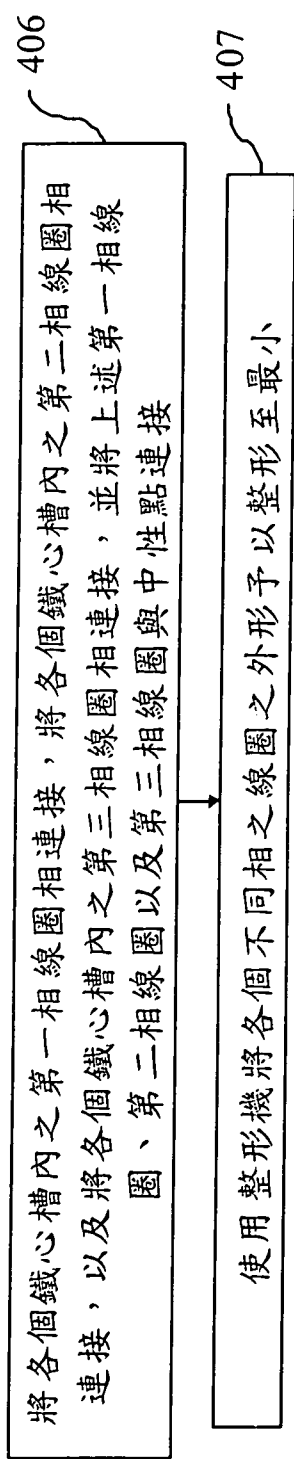 將各個鐵心槽內之第一相線圈相連接，將各個鐵心槽內之第二相線圈相
連接，以及將各個鐵心槽內之第三相線圈相連接，並將上述第一相線
圈、第二相線圈以及第三相線圈與中性點連接
406
使用整形機將各個不同相之線圈之外形予以整形至最小
407